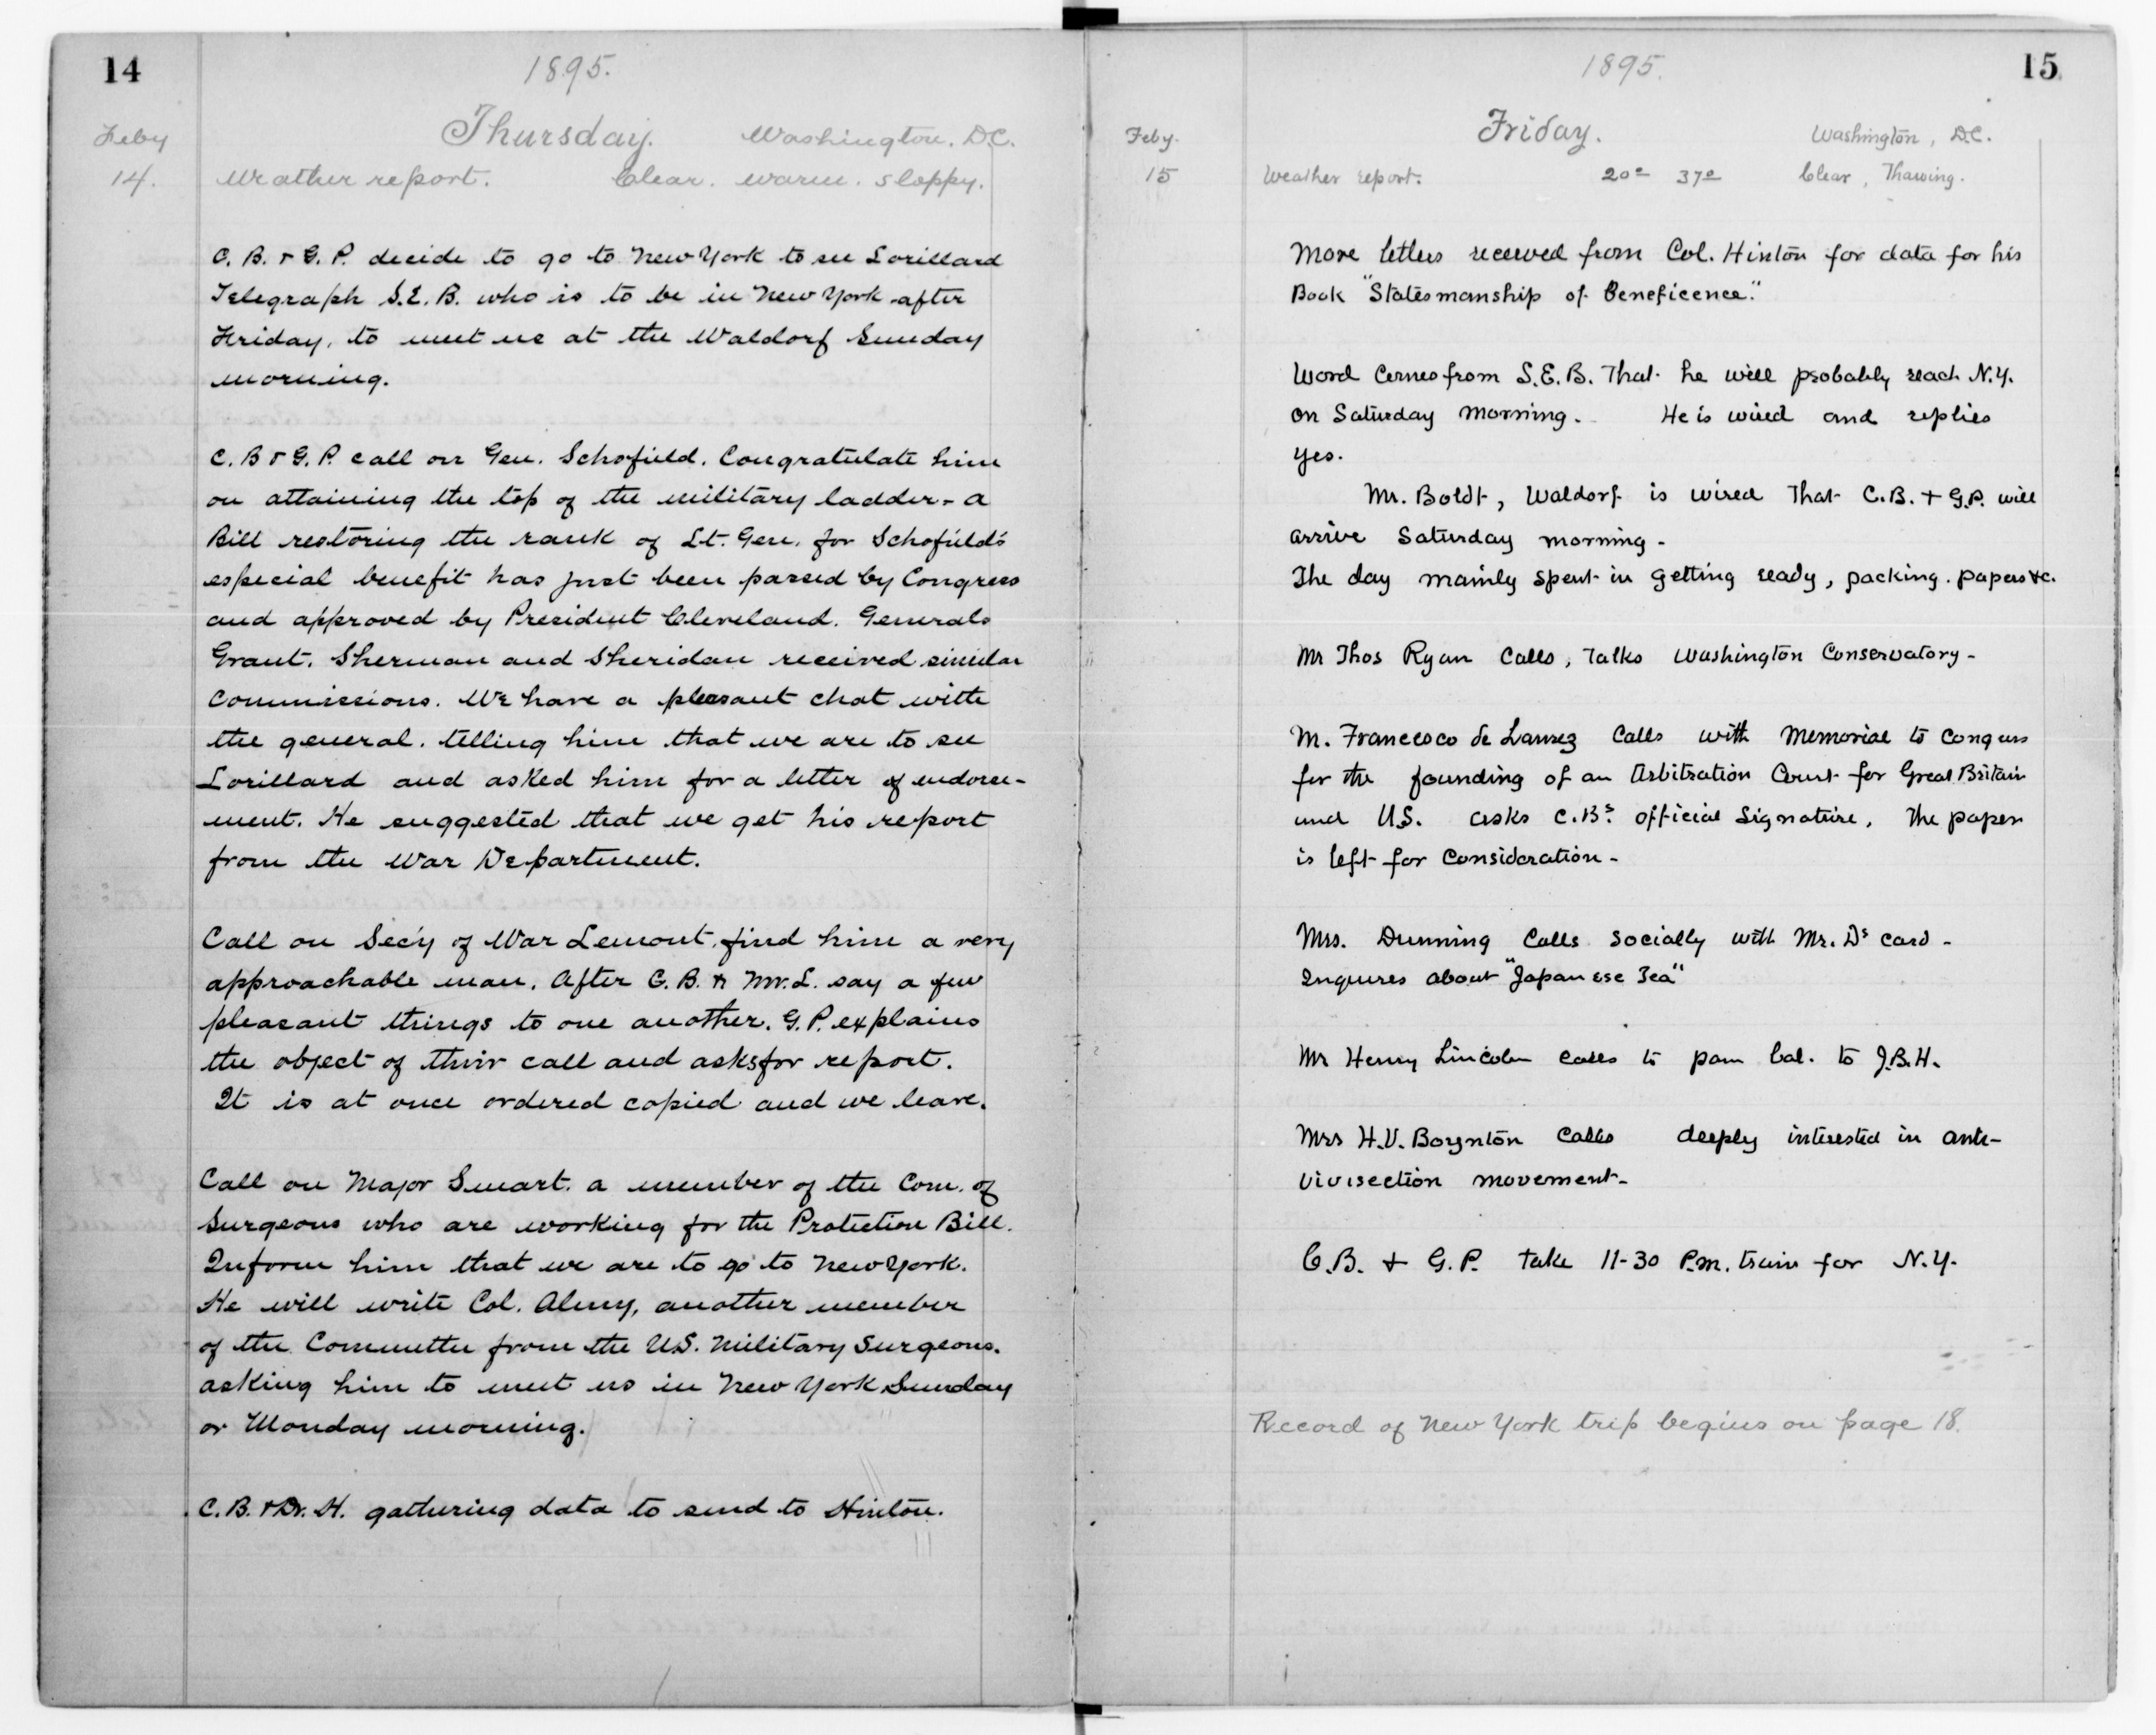 14
1895.
Feby
Thursday. Washington, D.C.
14. Weather report. Clear. warm. sloppy.
C. B. & G. P. decide to go to New York to see Lorillard
Telegraph S.E.B. who is to be in New York after
Friday, to meet us at the Waldorf Sunday
morning.
C. B & G. P. call on Gen. Schofield. Congratulate him
on attaining the top of the military ladder - a
Bill restoring the rank of Lt. Gen. for Schofield's
especial benefit has just been passed by Congress
and approved by President Cleveland. Generals
Grant. Sherman and Sheridan received similar
Commissions. We have a pleasant chat with
the general. telling him that we are to see
Lorillard and asked him for a letter of endorse-
ment. He suggested that we get his report
from the War Department.
Call on Sec'y of War Lemont, find him a very
approachable man. After C. B. & Mr. L. say a few
pleasant things to one another. G. P. explains
the object of their call and asks for report.
It is at once ordered copied and we leave.
Call on Major Smart. a member of the Com. of
Surgeons who are working for the Protection Bill.
Inform him that we are to go to New York.
He will write Col. Almy, another member
of the Committee from the U.S. Military Surgeons.
asking him to meet us in New York Sunday
or Monday morning.
C. B. & Dr. H. gathering data to send to Hinton.
15
1895.
Feby.
Friday. Washington, D.C.
15 Weather report. 20° 37° Clear, Thawing.
More letters received from Col. Hinton for data for his
Book "Statesmanship of Beneficence."
Word comes from S.E.B. That he will probably reach N.Y.
on Saturday Morning. He is wired and replies
yes.
Mr. Boldt, Waldorf is wired That C.B. & G.P. will
arrive Saturday morning -
The day mainly spent in getting ready, packing. papers &c.
Mr Thos Ryan Calls, Talks Washington Conservatory -
M. Francesco de Calls with Memorial to Congress
for the founding of an Arbitration Court for Great Britain
and U.S. asks C.B's official Signature. The paper
is left for Consideration -
Mrs. Dunning Calls Socially with Mr. D's card -
Inquires about "Japanese Tea"
Mr Henry Lincoln calls to bal. to J.B.H.
Mrs H.V. Boynton Calls deeply interested in anti-
vivisection movement -
C.B. & G.P. Take 11-30 P.M. train for N.Y.
Record of New York trip begins on page 18.